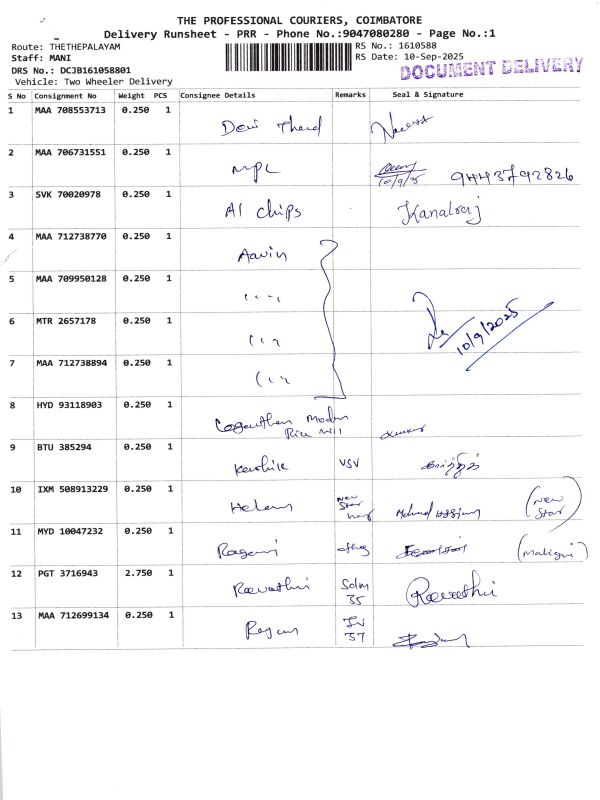 THE PROFESSIONAL COURIERS, COIMBATORE
Delivery Runsheet - PRR - Phone No.:9047080280 - Page No.:1
Route: THETHEPALAYAM
RS No.: 1610588
Staff: MANI
RS Date: 10-Sep-2025
DRS No.: DCJB161058801
DOCUMENT DELIVERY
Vehicle: Two Wheeler Delivery
S No Consignment No Weight PCS Consignee Details Remarks Seal & Signature
1 MAA 708553713 0.250 1
2 MAA 706731551 0.250 1 MPL 10/9/25 9443792826
3 SVK 70020978 0.250 1 A1 chips Kanalraj
4 MAA 712738770 0.250 1 Aavin
5 MAA 709950128 0.250 1 " "
6 MTR 2657178 0.250 1 " "
10/9/2025
7 MAA 712738894 0.250 1 " "
8 HYD 93118903 0.250 1 Modern
Rice Mill
9 BTU 385294 0.250 1 VSV
10 IXM 508913229 0.250 1 Helen New Star (New Star)
11 MYD 10047232 0.250 1 Ragavi
12 PGT 3716943 2.750 1 Revathi 35 Revathi
13 MAA 712699134 0.250 1 37